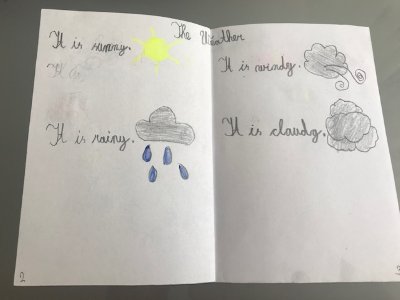 The Weather
It is sunny.
It is
It is rainy.
2
It is windy.
It is claudy.
3